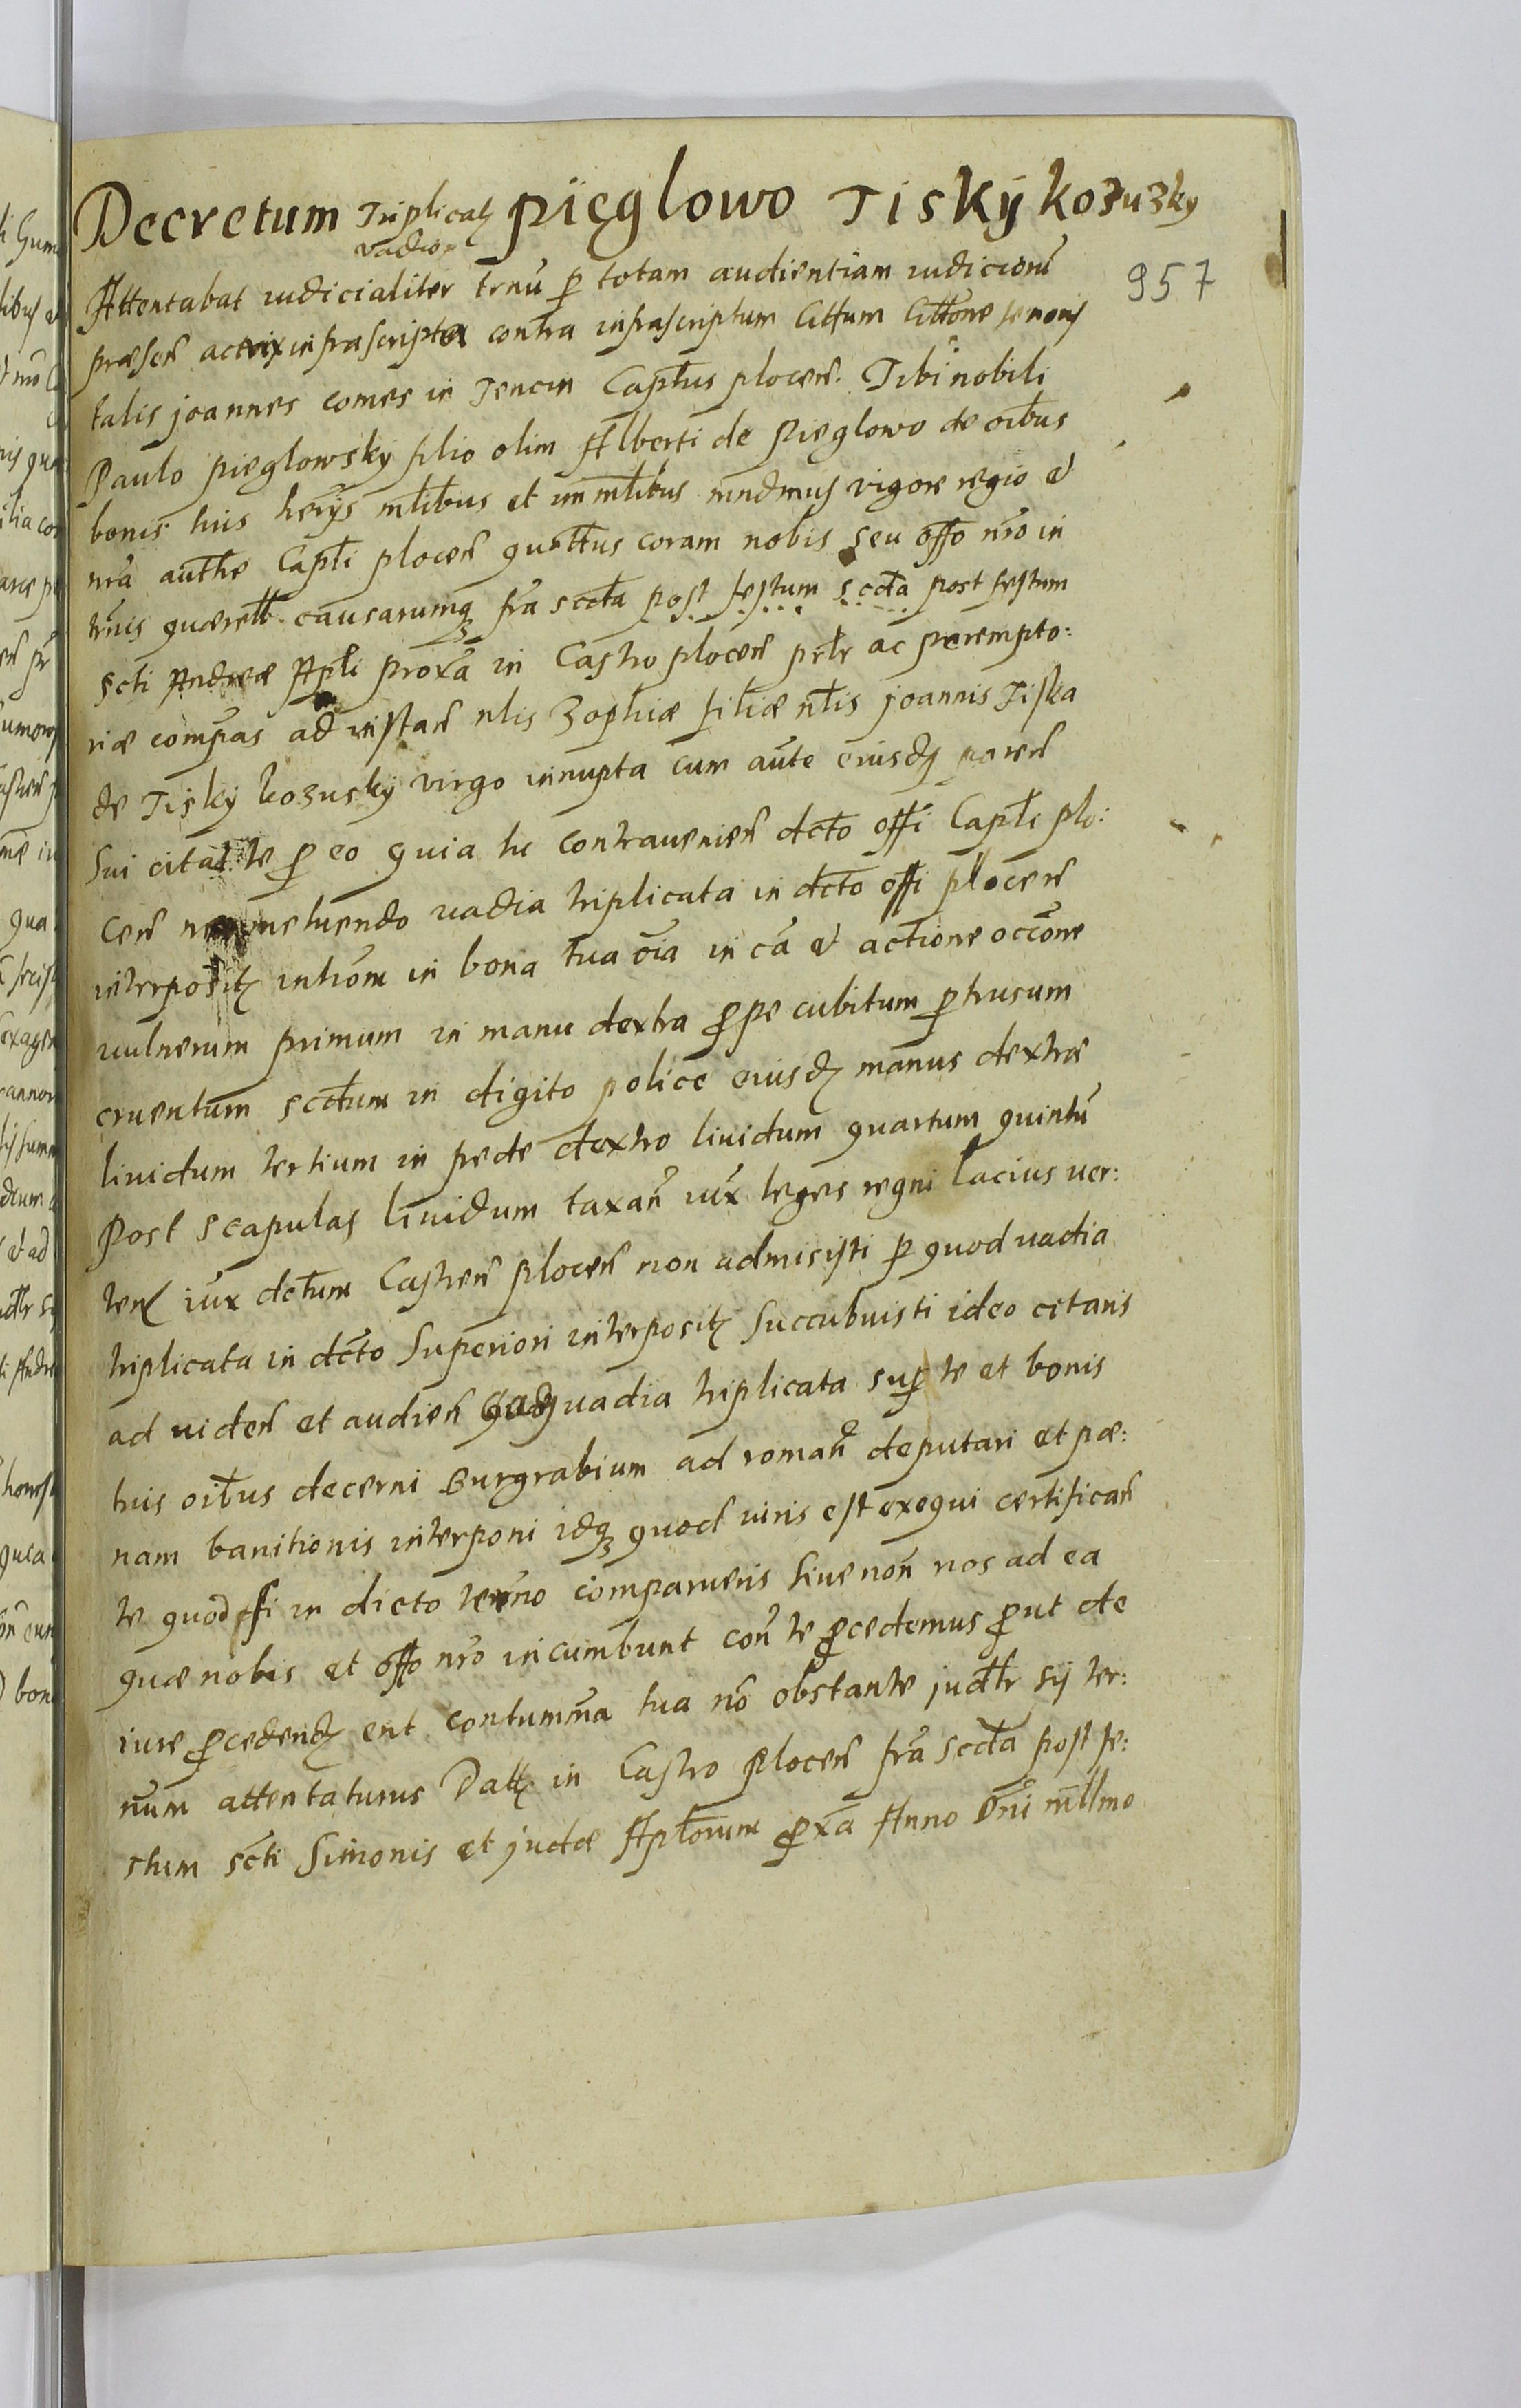 Decretum Triplicatꝫ vadior pięglowo Tiskÿ kozuzky
957
Attentabat iudicialiter trnũ ꝑ totam audientiam iudicionũ
præscñ actrix infrascripta contra infrascriptum Cittum Cittõne tenoris
talis joannes comes in Tencin Capttus plocen. Tibi nobili
Paulo pieglowsky filio olim Alberti de Pieglowo de oĩbus
bonis tuis herijs mtibus et immtibus mndmus vigore regio et
nrã authe Capti plocen quattus coram nobis seu offo nrõ in
trnis quærell. causarumqꝫ frã sccta post festum sccta post festum
scti Andreæ Apti proxã in Castro plocen prtr ac perempto:
riæ compas ad instan ntis Zophiæ filiæ ntis joannis Tiska
de Tisky kozusky virgo innupta cum aute eiusdꝫ paren
sui citat te ꝑ eo quia tu contrauenien dcto offi Capti plo:
cen uadia triplicata in dcto offi plocen
interpositꝫ introm in bona tua oĩa in cã et actione occõne
uulnerum primum in manu dextra ꝓpe cubitum ꝑtrusum
cruentum scdum in digito police eiusdꝫ manus dextræ
liuidum tertium in pede dextro liuidum quartum quintũ
post scapulas liuidum taxañ iux leges regni lacius uer:
ten iux dctum Castren plocen non admisisti ꝑ quod uadia
triplicata in dcto superiori interpositꝫ succubuisti ideo citaris
ad uiden et audien uadia triplicata suꝑ te et bonis
tuis oĩbus decerni Burgrabium ad romañ deputari et pæ:
nam banitionis interponi idqꝫ quod iuris est exequi certifican
te quod si in dicto termno comparueris siue non nos ad ea
quæ nobis et offo nrõ incumbunt coñ te ꝓcedemus ꝓut de
iure ꝓcedendꝫ erit contummã tua nõ obstante judtr sij ter:
num attentaturus Dattꝫ in Castro Plocen frã sccta post fe:
stum scti Simonis et judæ Aptorum ꝓxã Anno Dñi mttmo